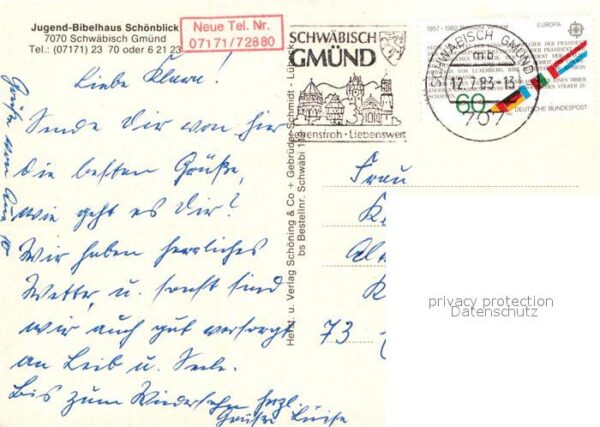 Jugend-Bibelhaus Schönblick
7070 Schwäbisch Gmünd
Tel.: (07171) 23 70 oder 6 21 23
Neue Tel. Nr.
07171/72880
SCHWÄBISCH
GMÜND
Lebensfroh · Liebenswert
1957-1982
EUROPA
SCHWÄBISCH GMÜND
mb
12.7.83-13
707
60
DEUTSCHE BUNDESPOST
Liebe
Sende Dir von hier
die besten Grüße,
wie geht es Dir?
Wir haben herrliches
Wetter, u. sonst sind
wir auch gut versorgt
an Leib u. Seele.
Bis zum Wiedersehn herzl.
Grüße Luise
Grüße von
Herst. u. Verlag Schöning & Co + Gebrüder Schmidt · Lübeck
bs Bestellnr. Schwäbi
Frau
K
K
73
privacy protection
Datenschutz